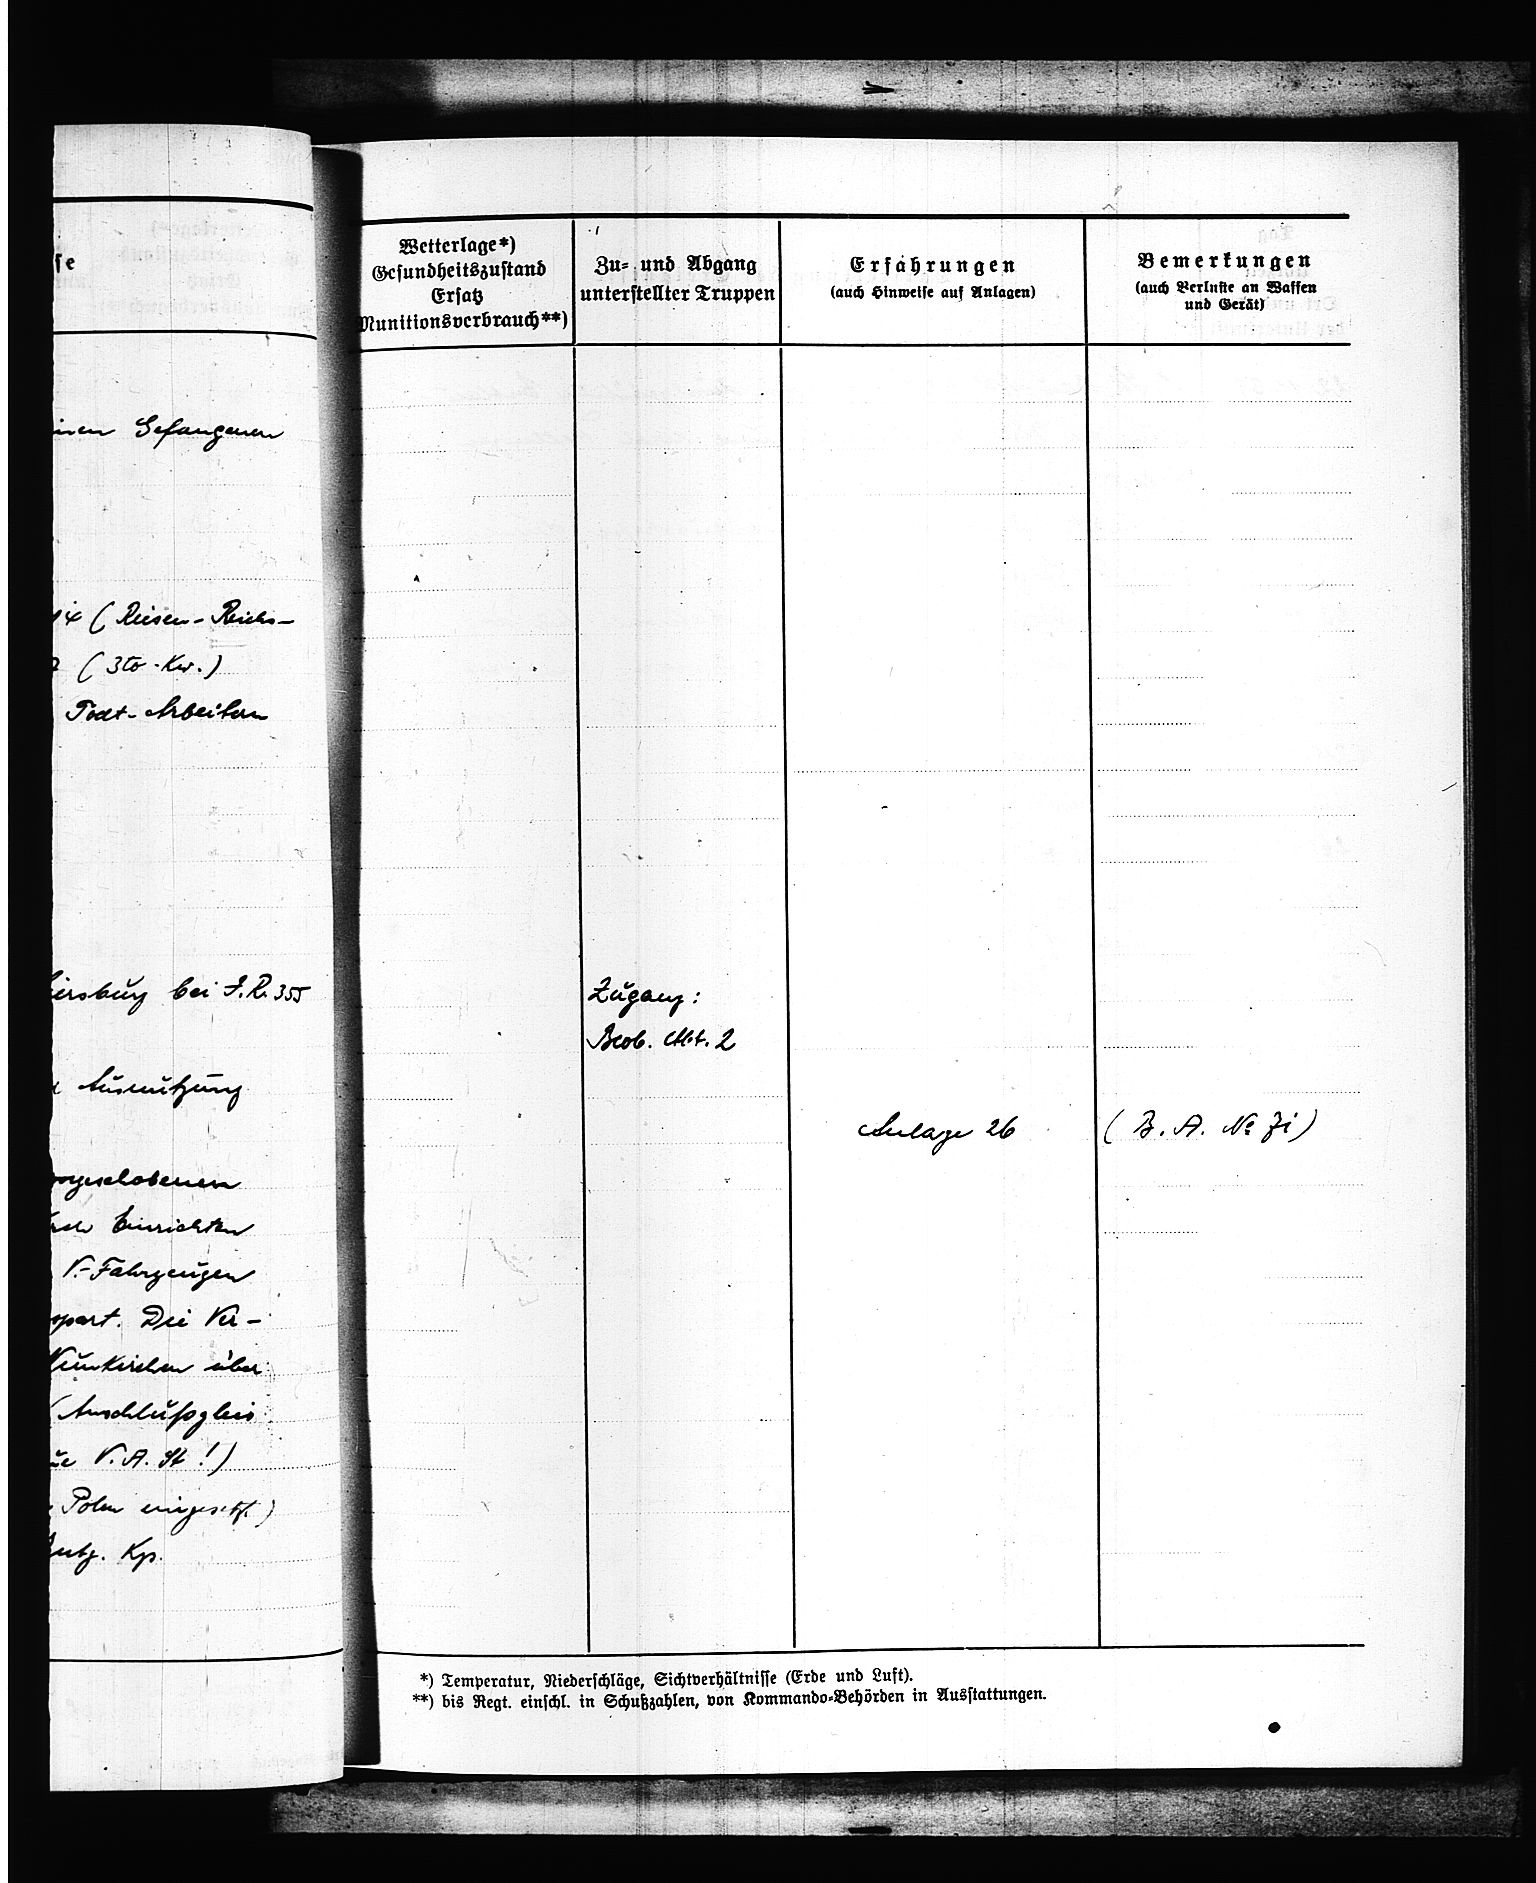 se
Gefangenen
(Riesen-Reichs-
(3to-Kw.)
Todt-Arbeitern
bei I.R. 355
Ausnutzung
vorgeschobenen
Einrichten
V.-Fahrzeugen
Die Ver-
Neunkirchen über
(Anschlußgleis
V.A.St!)
Polen eingesetzt)
Kp.
Wetterlage*)
Gesundheitszustand
Ersatz
Munitionsverbrauch**)
Zu- und Abgang
unterstellter Truppen
Erfahrungen
(auch Hinweise auf Anlagen)
Bemerkungen
(auch Verluste an Waffen
und Gerät)
Zugang:
Beob. Abt. 2
Anlage 26
(B. A. №
*) Temperatur, Niederschläge, Sichtverhältnisse (Erde und Luft).
**) bis Regt. einschl. in Schußzahlen, von Kommando-Behörden in Ausstattungen.